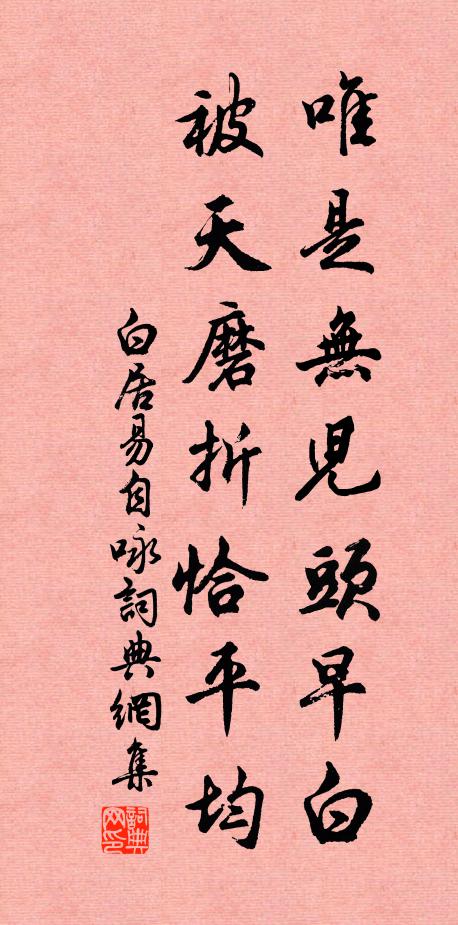 唯是無兒頭早白
被天磨折恰平均
白居易自咏詞典網集
詞典
网印